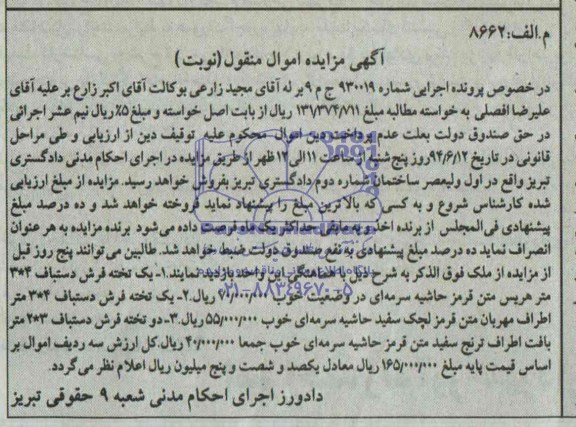 م.الف:۸۶۶۲
آگهی مزایده اموال منقول (نوبت)
در خصوص پرونده اجرایی شماره ۹۳۰۰۱۹ ج م ۹ بر له آقای مجید زارعی بوکالت آقای اکبر زارع بر علیه آقای
علیرضا افضلی به خواسته مطالبه مبلغ ۱۳۷/۳۷۴/۷۱۱ ریال از بابت اصل خواسته و مبلغ ۵٪ ریال نیم عشر اجرائی
در حق صندوق دولت بعلت عدم پرداخت دین اموال محکوم علیه توقیف دین از ارزیابی و طی مراحل
قانونی در تاریخ ۹۴/۶/۱۲ روز پنج شنبه از ساعت ۱۱ الی ۱۲ ظهر از طریق مزایده در اجرای احکام مدنی دادگستری
تبریز واقع در اول ولیعصر ساختمان شماره دوم دادگستری تبریز بفروش خواهد رسید. مزایده از مبلغ ارزیابی
شده کارشناس شروع و به کسی که بالاترین مبلغ را پیشنهاد نماید فروخته خواهد شد و ده درصد مبلغ
پیشنهادی فی المجلس از برنده اخذ و به مابقی حداکثر یک ماه فرصت داده می شود برنده مزایده به هر عنوان
انصراف نماید ده درصد مبلغ پیشنهادی به نفع صندوق دولت ضبط خواهد شد. طالبین می توانند پنج روز قبل
از مزایده از ملک فوق الذکر به شرح ذیل با هماهنگی این واحد بازدید نمایند.۱- یک تخته فرش دستباف ۴*۳
متر هریس متن قرمز حاشیه سرمه ای در وضعیت خوب ۷۱/۰۰۰/۰۰۰ ریال.۲- یک تخته فرش دستباف ۴*۳ متر
اطراف مهربان متن قرمز لچک سفید حاشیه سرمه ای خوب ۵۵/۰۰۰/۰۰۰ ریال.۳- دو تخته فرش دستباف ۳*۲ متر
بافت اطراف ترنج سفید متن قرمز حاشیه سرمه ای خوب جمعا ۴۰/۰۰۰/۰۰۰ ریال.کل ارزش سه ردیف اموال بر
اساس قیمت پایه مبلغ ۱۶۵/۰۰۰/۰۰۰ ریال معادل یکصد و شصت و پنج میلیون ریال اعلام نظر می گردد.
دادورز اجرای احکام مدنی شعبه ۹ حقوقی تبریز
۰۲۱-۸۸۳۴۹۶۷۰-۵